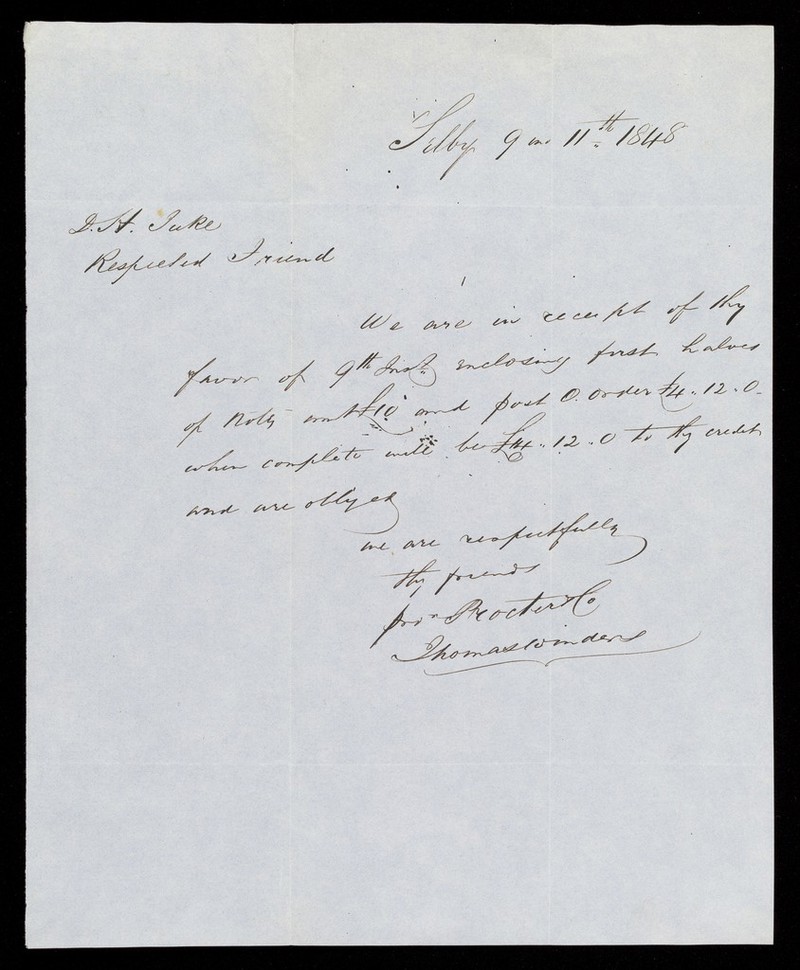 Selby 9 mo 11th 1848
D. H. Tuke
Respected Friend
We are in receipt of thy
favor of 9th Inst. enclosing first halves
of Notes amt £10 and post O. order £4.. 12. 0
when complete will be £14.. 12. 0 to thy credit
and are obliged
we are respectfully
thy friends
pro Procter & Co
Thomas Winders